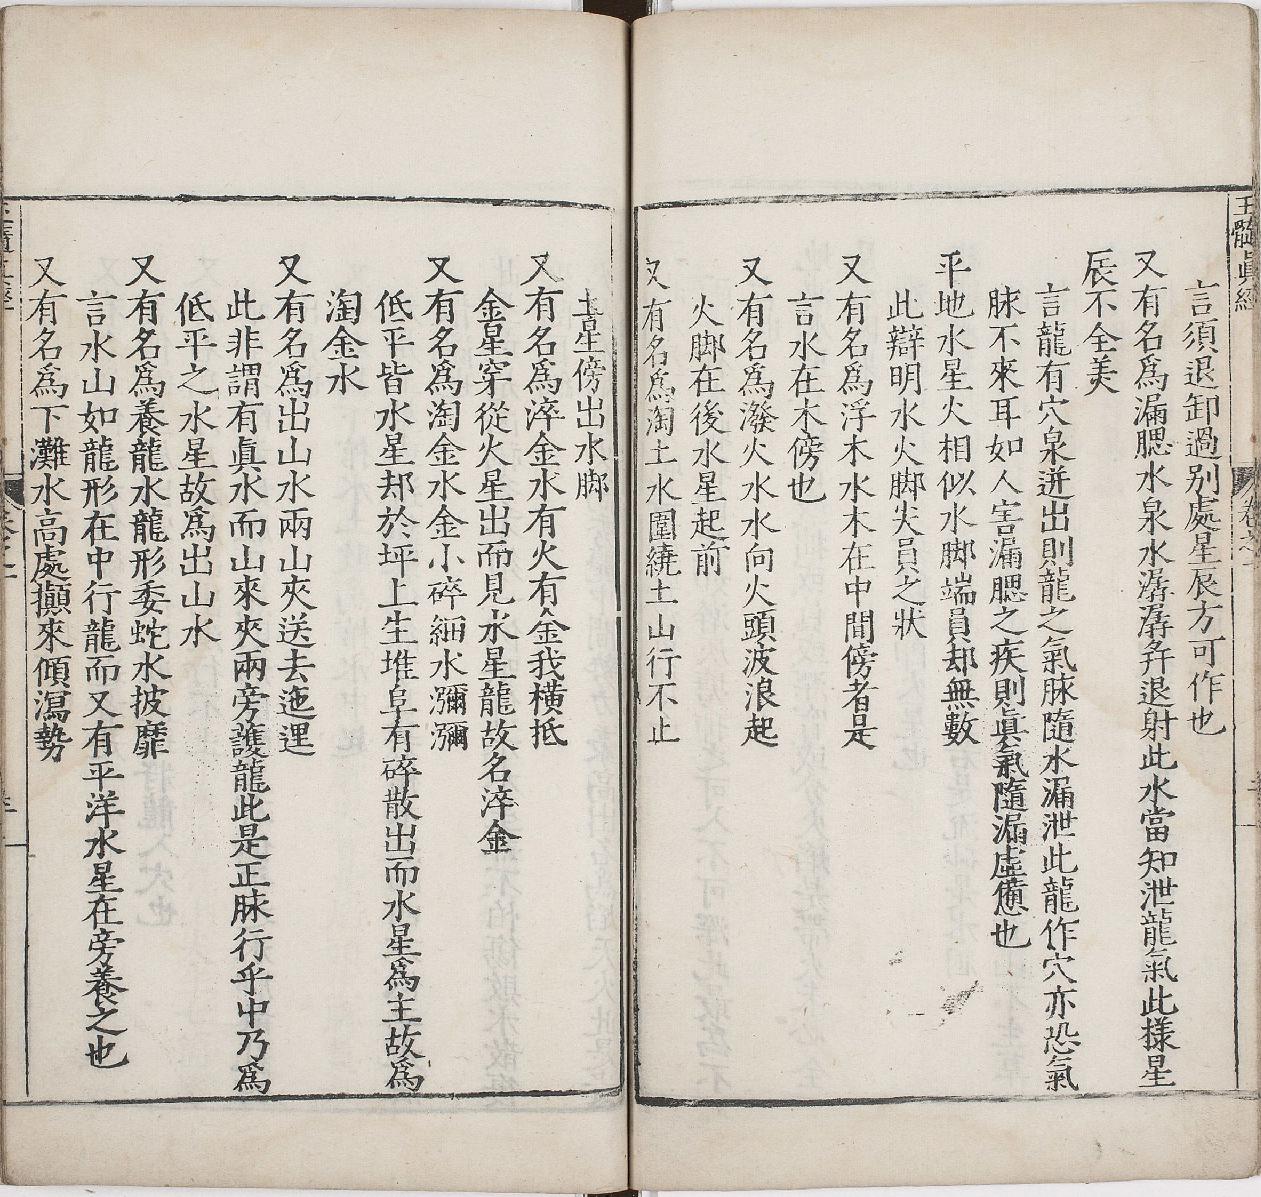 玉髓眞經
言須退卸過别處星辰方可作也
又有名爲漏腮水泉水潺潺并退射此水當知泄龍氣此樣星
辰不全美
言龍有穴泉迸出則龍之氣脉隨水漏泄此龍作穴亦恐氣
脉不來耳如人害漏腮之疾則眞氣隨漏虛憊也
平地水星火相似水脚端員却無數
此辯明水火脚尖員之狀
又有名爲浮木水木在中間傍者是
言水在木傍也
又有名爲潑火水水向火頭波浪起
火脚在後水星起前
又有名爲淘土水圍繞土山行不止
土星傍出水脚
又有名爲淬金水有火有金我橫抵
金星穿從火星出而見水星龍故名淬金
又有名爲淘金水金小碎細水瀰瀰
低平皆水星却於坪上生堆阜有碎散出而水星爲主故爲
淘金水
又有名爲出山水兩山夾送去迤逦
此非謂有眞水而山來夾兩旁護龍此是正脉行乎中乃爲
低平之水星故爲出山水
又有名爲養龍水龍形委蛇水披靡
言水山如龍形在中行龍而又有平洋水星在旁養之也
又有名爲下灘水高處攧來傾瀉勢